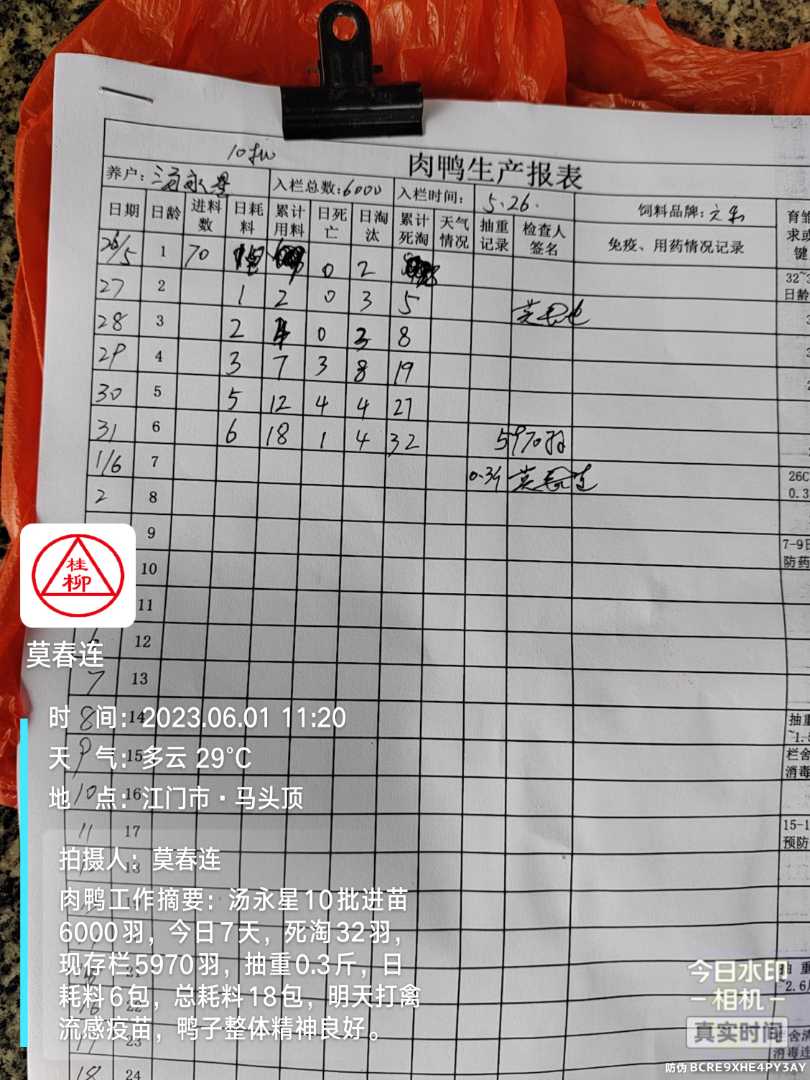 10批
肉鸭生产报表
养户: 汤永星 入栏总数: 6000 入栏时间: 5.26. 饲料品牌:
日期 日龄 进料数 日耗料 累计用料 日死亡 日淘汰 累计死淘 天气情况 抽重记录 检查人签名 免疫、用药情况记录
26/5 1 70 0 2
32~3
日龄
27 2 1 2 0 3 5 莫春连
28 3 2 4 0 3 8
29 4 3 7 3 8 19
30 5 5 12 4 4 27
31 6 6 18 1 4 32 5970羽
1/6 7 0.3斤 莫春连
26C
0.3
2 8
9
7-9日
防药
10
11
12
7 13
8 14
抽重
~1.5
9 15
栏舍
消毒
10 16
11 17
15-1
预防
13
抽 重
2.6
22
23
消毒
18 24
桂柳
莫春连
时 间: 2023.06.01 11:20
天 气: 多云 29°C
地 点: 江门市·马头顶
拍摄人: 莫春连
肉鸭工作摘要: 汤永星10批进苗
6000羽，今日7天，死淘32羽，
现存栏5970羽，抽重0.3斤，日
耗料6包，总耗料18包，明天打禽
流感疫苗，鸭子整体精神良好。
今日水印
-相机-
真实时间
防伪 BCRE9XHE4PY3AY